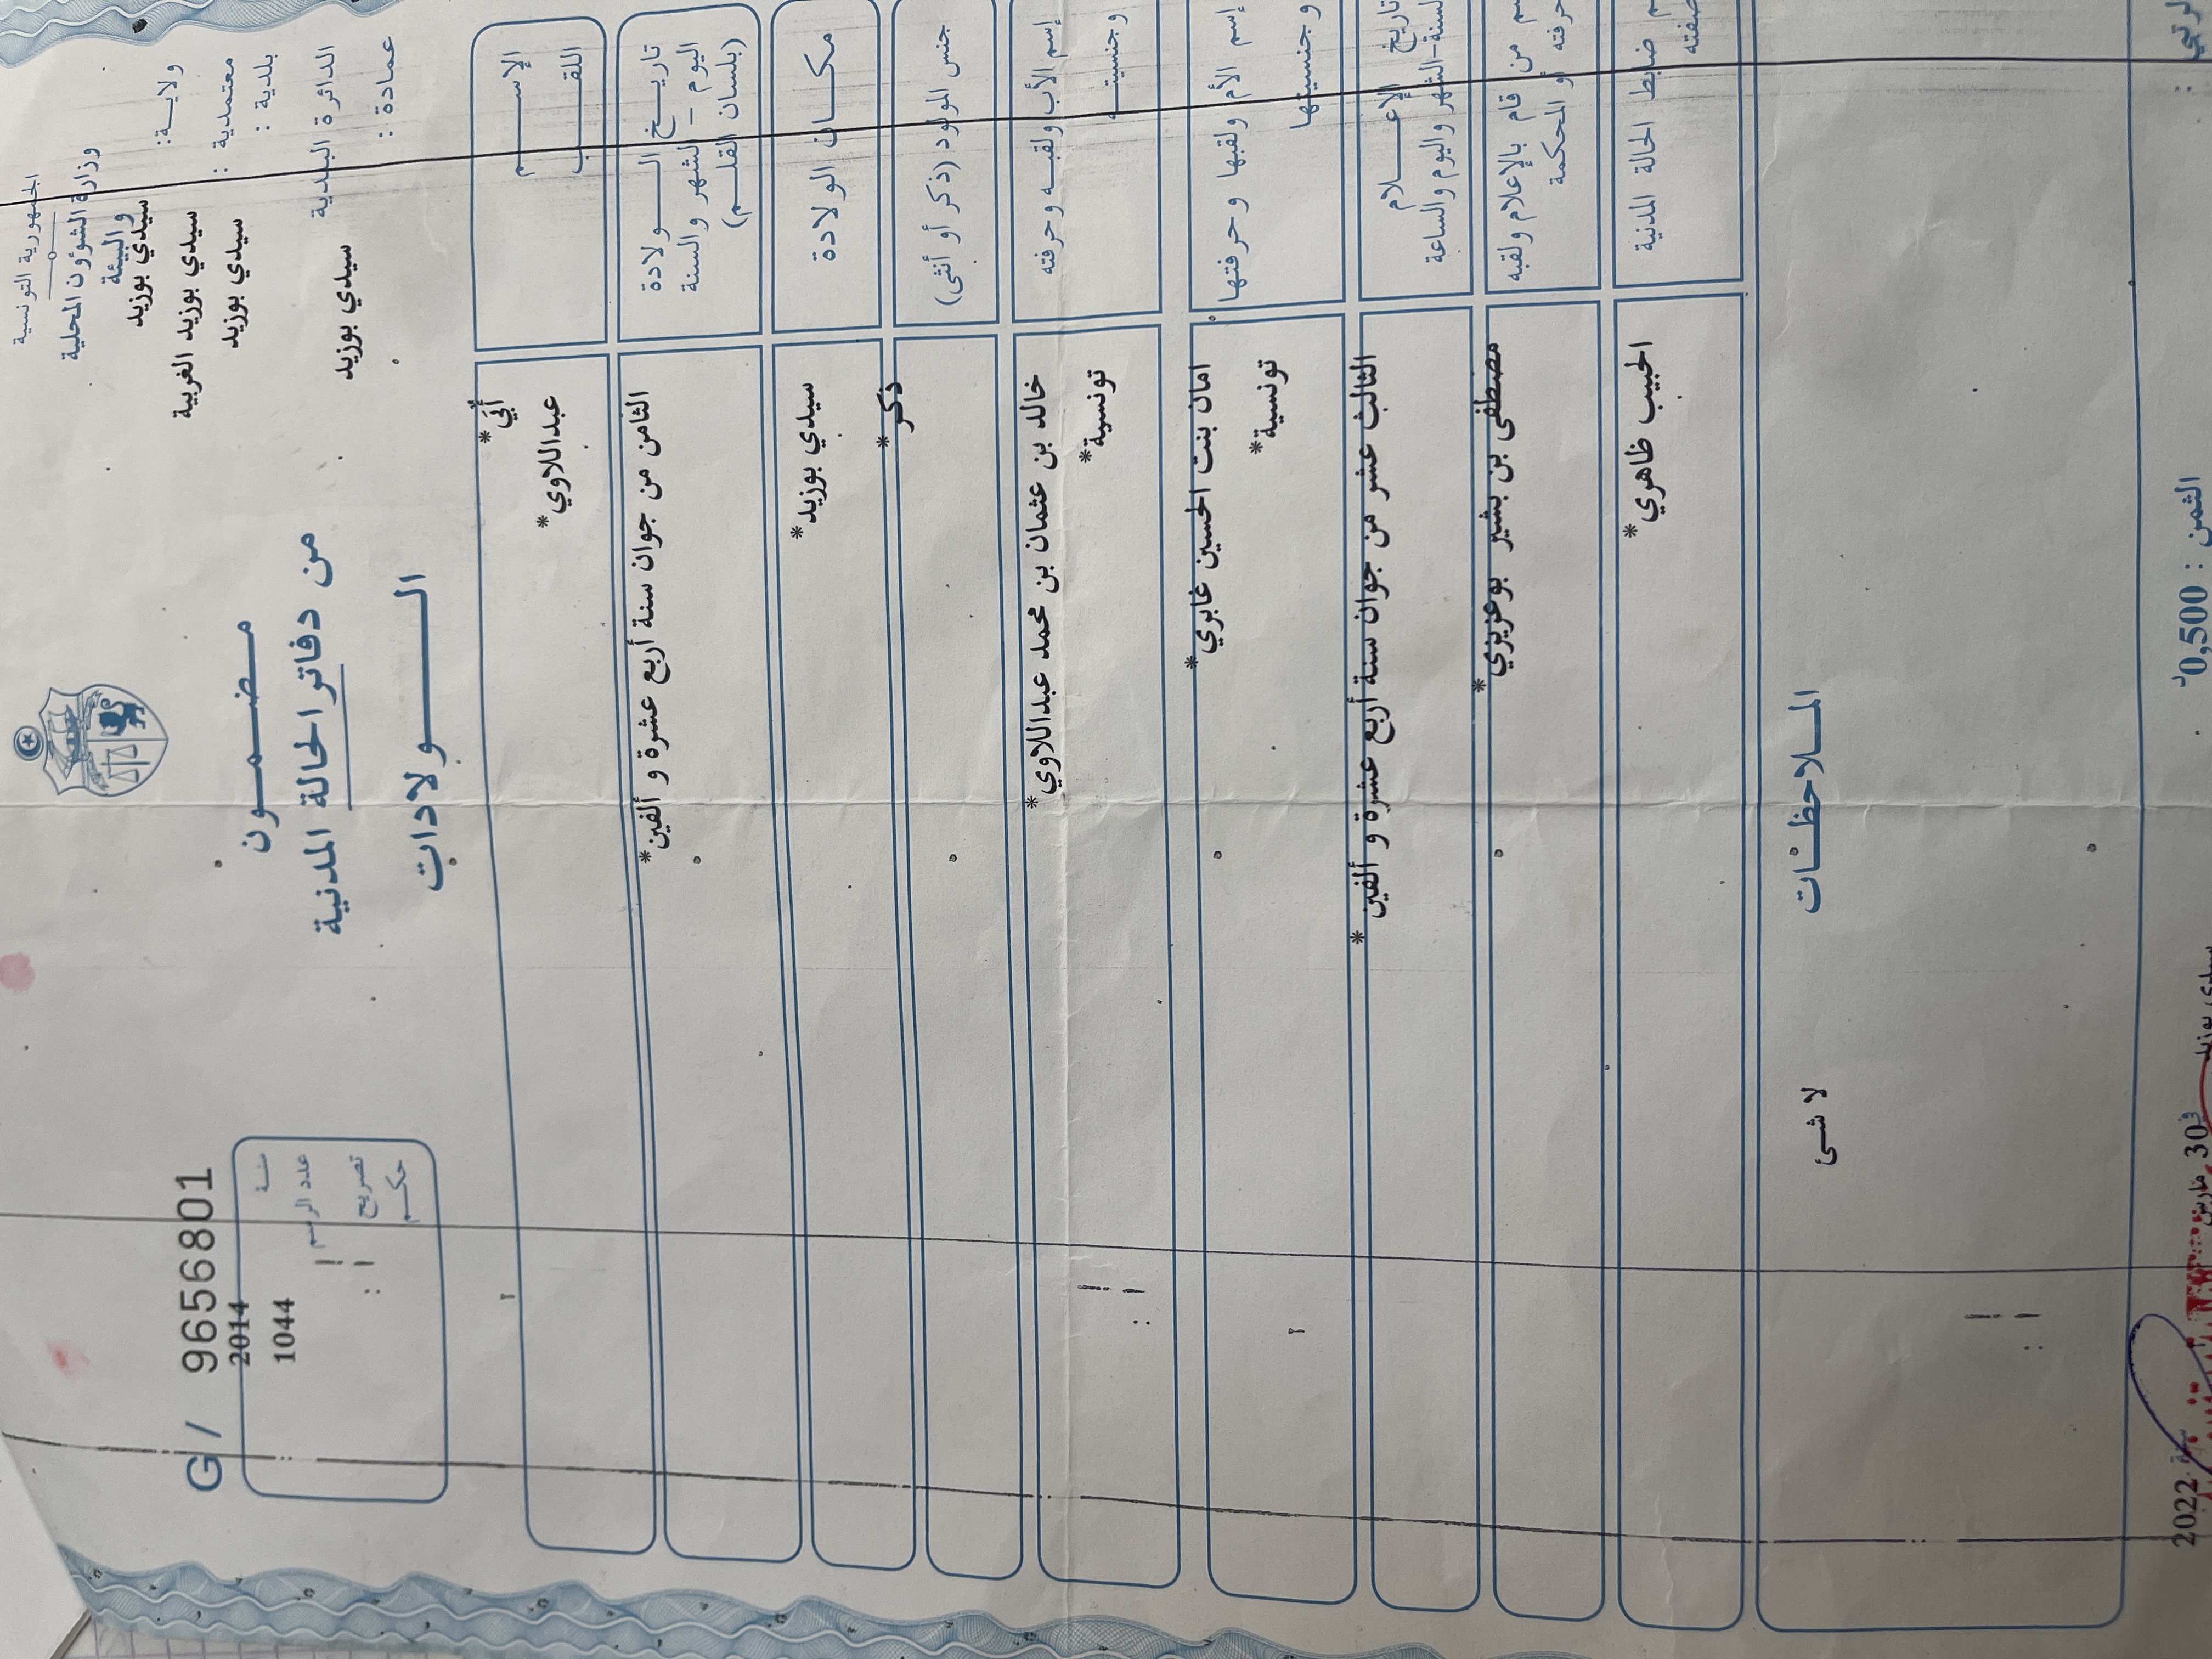 الجمهورية التونسية
وزارة الشؤون المحلية
والبيئة
ولاية: سيدي بوزيد
سيدي بوزيد
معتمدية : سيدي بوزيد الغربية
بلدية : سيدي بوزيد
الدائرة البلدية
عمادة : سيدي بوزيد
مضمون
من دفاتر الحالة المدنية
الولادات
G/ 9656801
سنة 2014
عدد الرسم 1044
تصريح
حكم
الإسم أبي*
اللقب عبداللاوي*
تاريخ الولادة
اليوم - الشهر والسنة
(بلسان القلم)
الثامن من جوان سنة أربع عشرة و ألفين*
مكان الولادة سيدي بوزيد*
جنس المولود (ذكر أو أنثى) ذكر*
إسم الأب ولقبه وحرفته
وجنسيته
خالد بن عثمان بن محمد عبداللاوي*
تونسية*
إسم الأم ولقبها وحرفتها
وجنسيتها
امان بنت الحسين غابري*
تونسية*
تاريخ الإعلام
السنة-الشهر واليوم والساعة
الثالث عشر من جوان سنة أربع عشرة و ألفين*
من قام بالإعلام ولقبه
حرفته أو المحكمة
مصطفى بن بشير بوعزيزي*
ضابط الحالة المدنية
صفته
الحبيب ظاهري*
الملاحظات
لا شئ
الثمن : 0,500د
سيدي بوزيد في 30 مارس سنة 2022